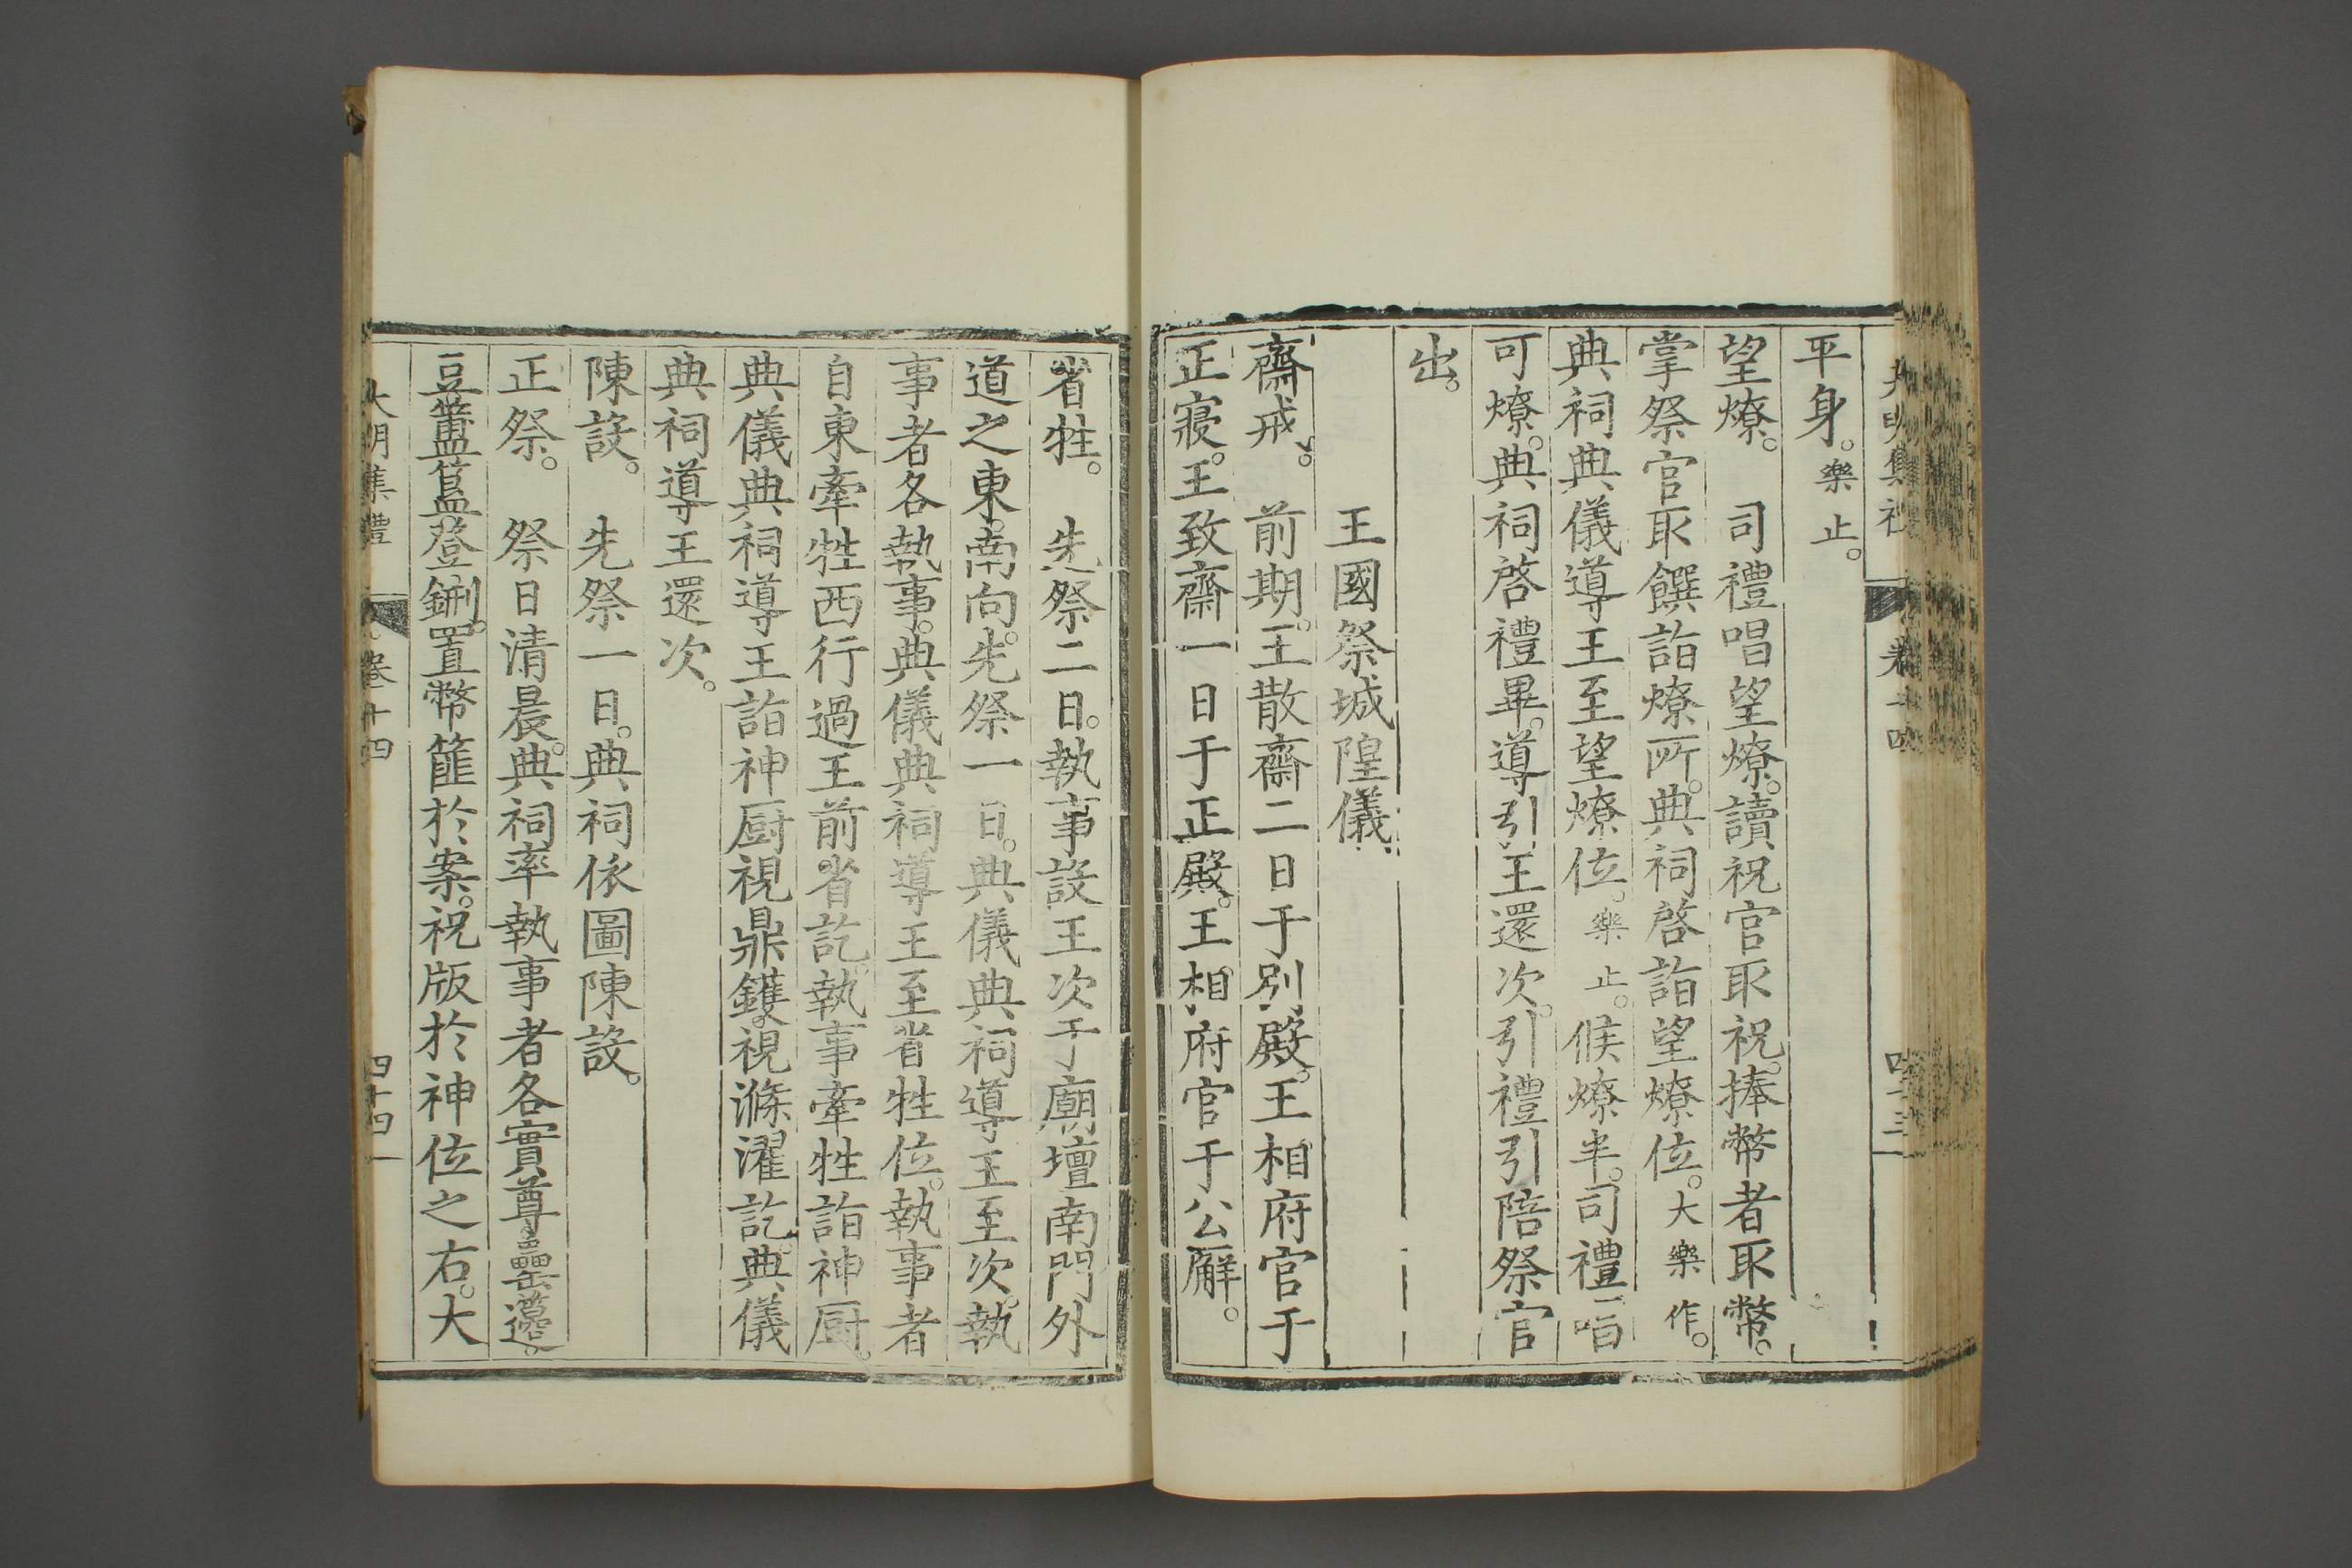 大明集禮　卷十四　四十三
平身。樂止。
望燎。　司禮唱望燎。讀祝官取祝。捧幣者取幣。
掌祭官取饌詣燎所。典祠啓詣望燎位。大樂作。
典祠典儀導王至望燎位。樂止。候燎半。司禮唱
可燎。典祠啓禮畢。導引王還次。引禮引陪祭官
出。
王國祭城隍儀
齋戒。　前期。王散齋二日于別殿。王相府官于
正寢。王致齋一日于正殿。王相府官于公廨。
省牲。　先祭二日。執事設王次于廟壇南門外
道之東。南向。先祭一日。典儀典祠導王至次。執
事者各執事。典儀典祠導王至省牲位。執事者
自東牽牲西行過王前省訖。執事牽牲詣神厨。
典儀典祠導王詣神厨視鼎鑊。視滌濯訖。典儀
典祠導王還次。
陳設。　先祭一日。典祠依圖陳設。
正祭。　祭日清晨。典祠率執事者各實尊罍籩。
豆簠簋登鉶。置幣篚於案。祝版於神位之右。大
大明集禮　卷十四　四十四